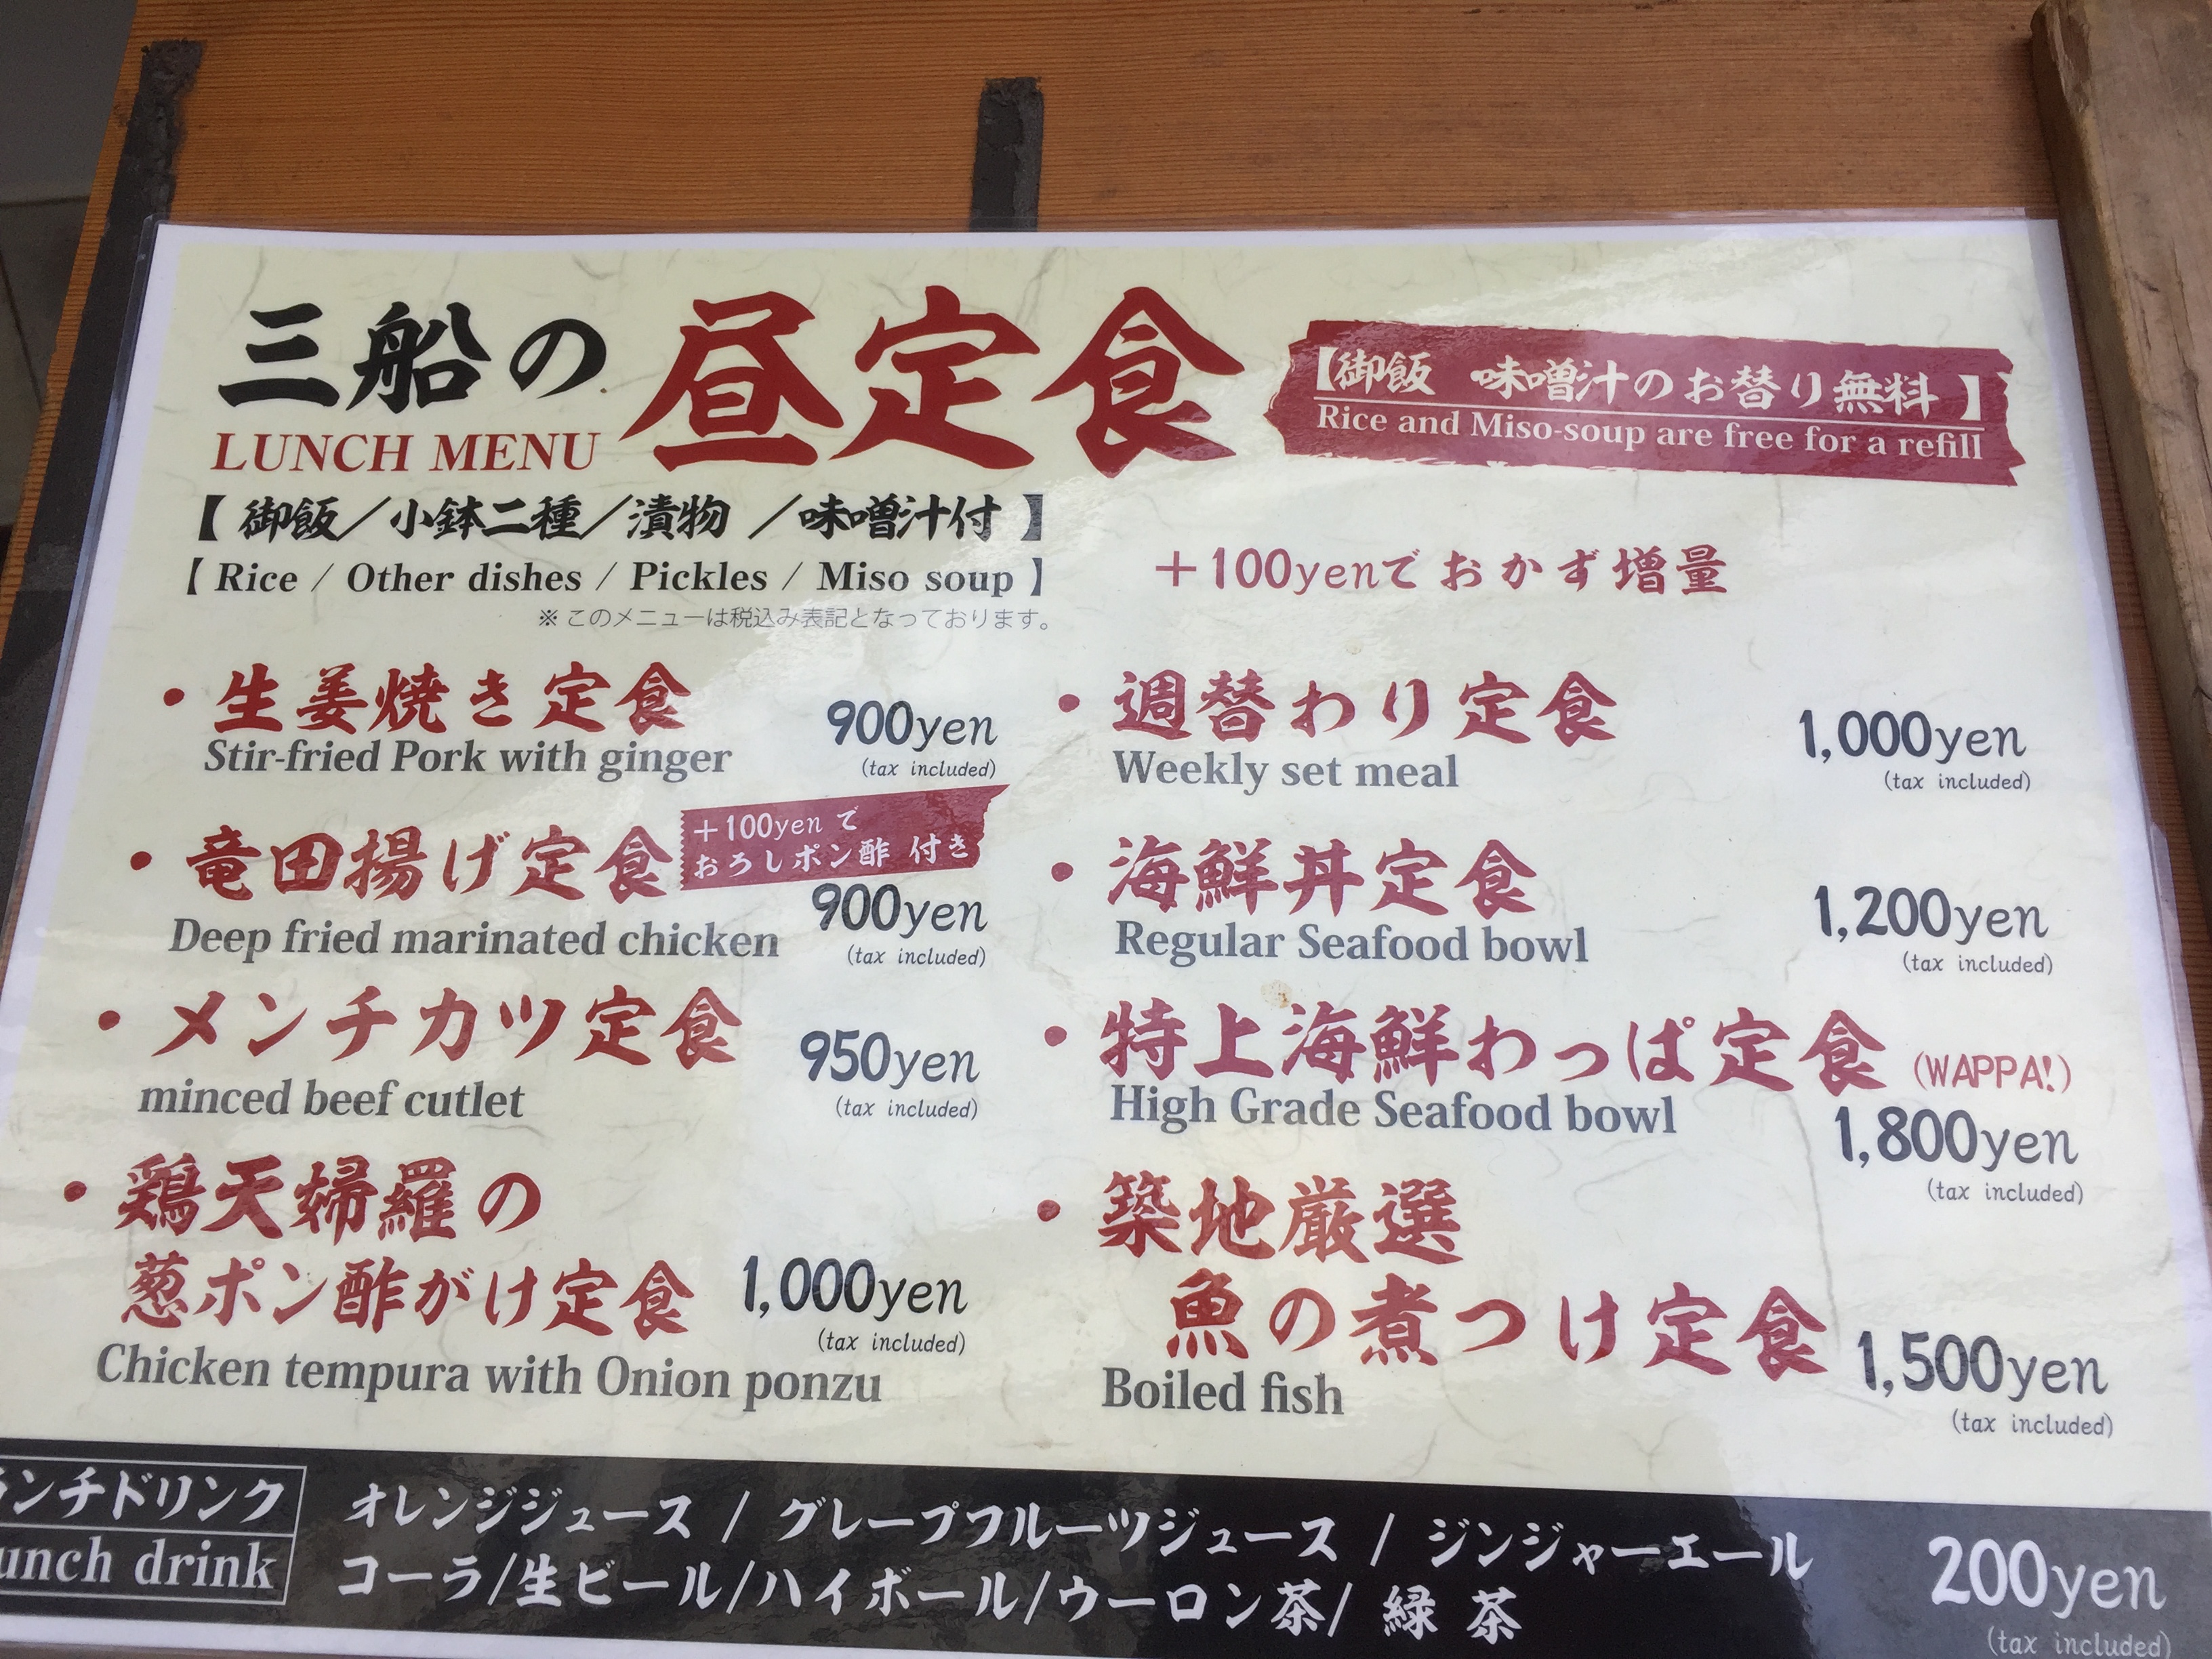 三船の昼定食
LUNCH MENU
【御飯 味噌汁のお替り無料】
Rice and Miso-soup are free for a refill
【御飯／小鉢二種／漬物／味噌汁付】
【Rice / Other dishes / Pickles / Miso soup】
※このメニューは税込み表記となっております。
＋100yenでおかず増量
・生姜焼き定食
Stir-fried Pork with ginger
900yen
(tax included)
・竜田揚げ定食
＋100yenで
おろしポン酢 付き
Deep fried marinated chicken
900yen
(tax included)
・メンチカツ定食
minced beef cutlet
950yen
(tax included)
・鶏天婦羅の
葱ポン酢がけ定食
1,000yen
(tax included)
Chicken tempura with Onion ponzu
・週替わり定食
Weekly set meal
1,000yen
(tax included)
・海鮮丼定食
Regular Seafood bowl
1,200yen
(tax included)
・特上海鮮わっぱ定食 (WAPPA!)
High Grade Seafood bowl
1,800yen
(tax included)
・築地厳選
魚の煮つけ定食
Boiled fish
1,500yen
(tax included)
ランチドリンク
unch drink
オレンジジュース / グレープフルーツジュース / ジンジャーエール
コーラ/生ビール/ハイボール/ウーロン茶/ 緑茶
200yen
(tax included)